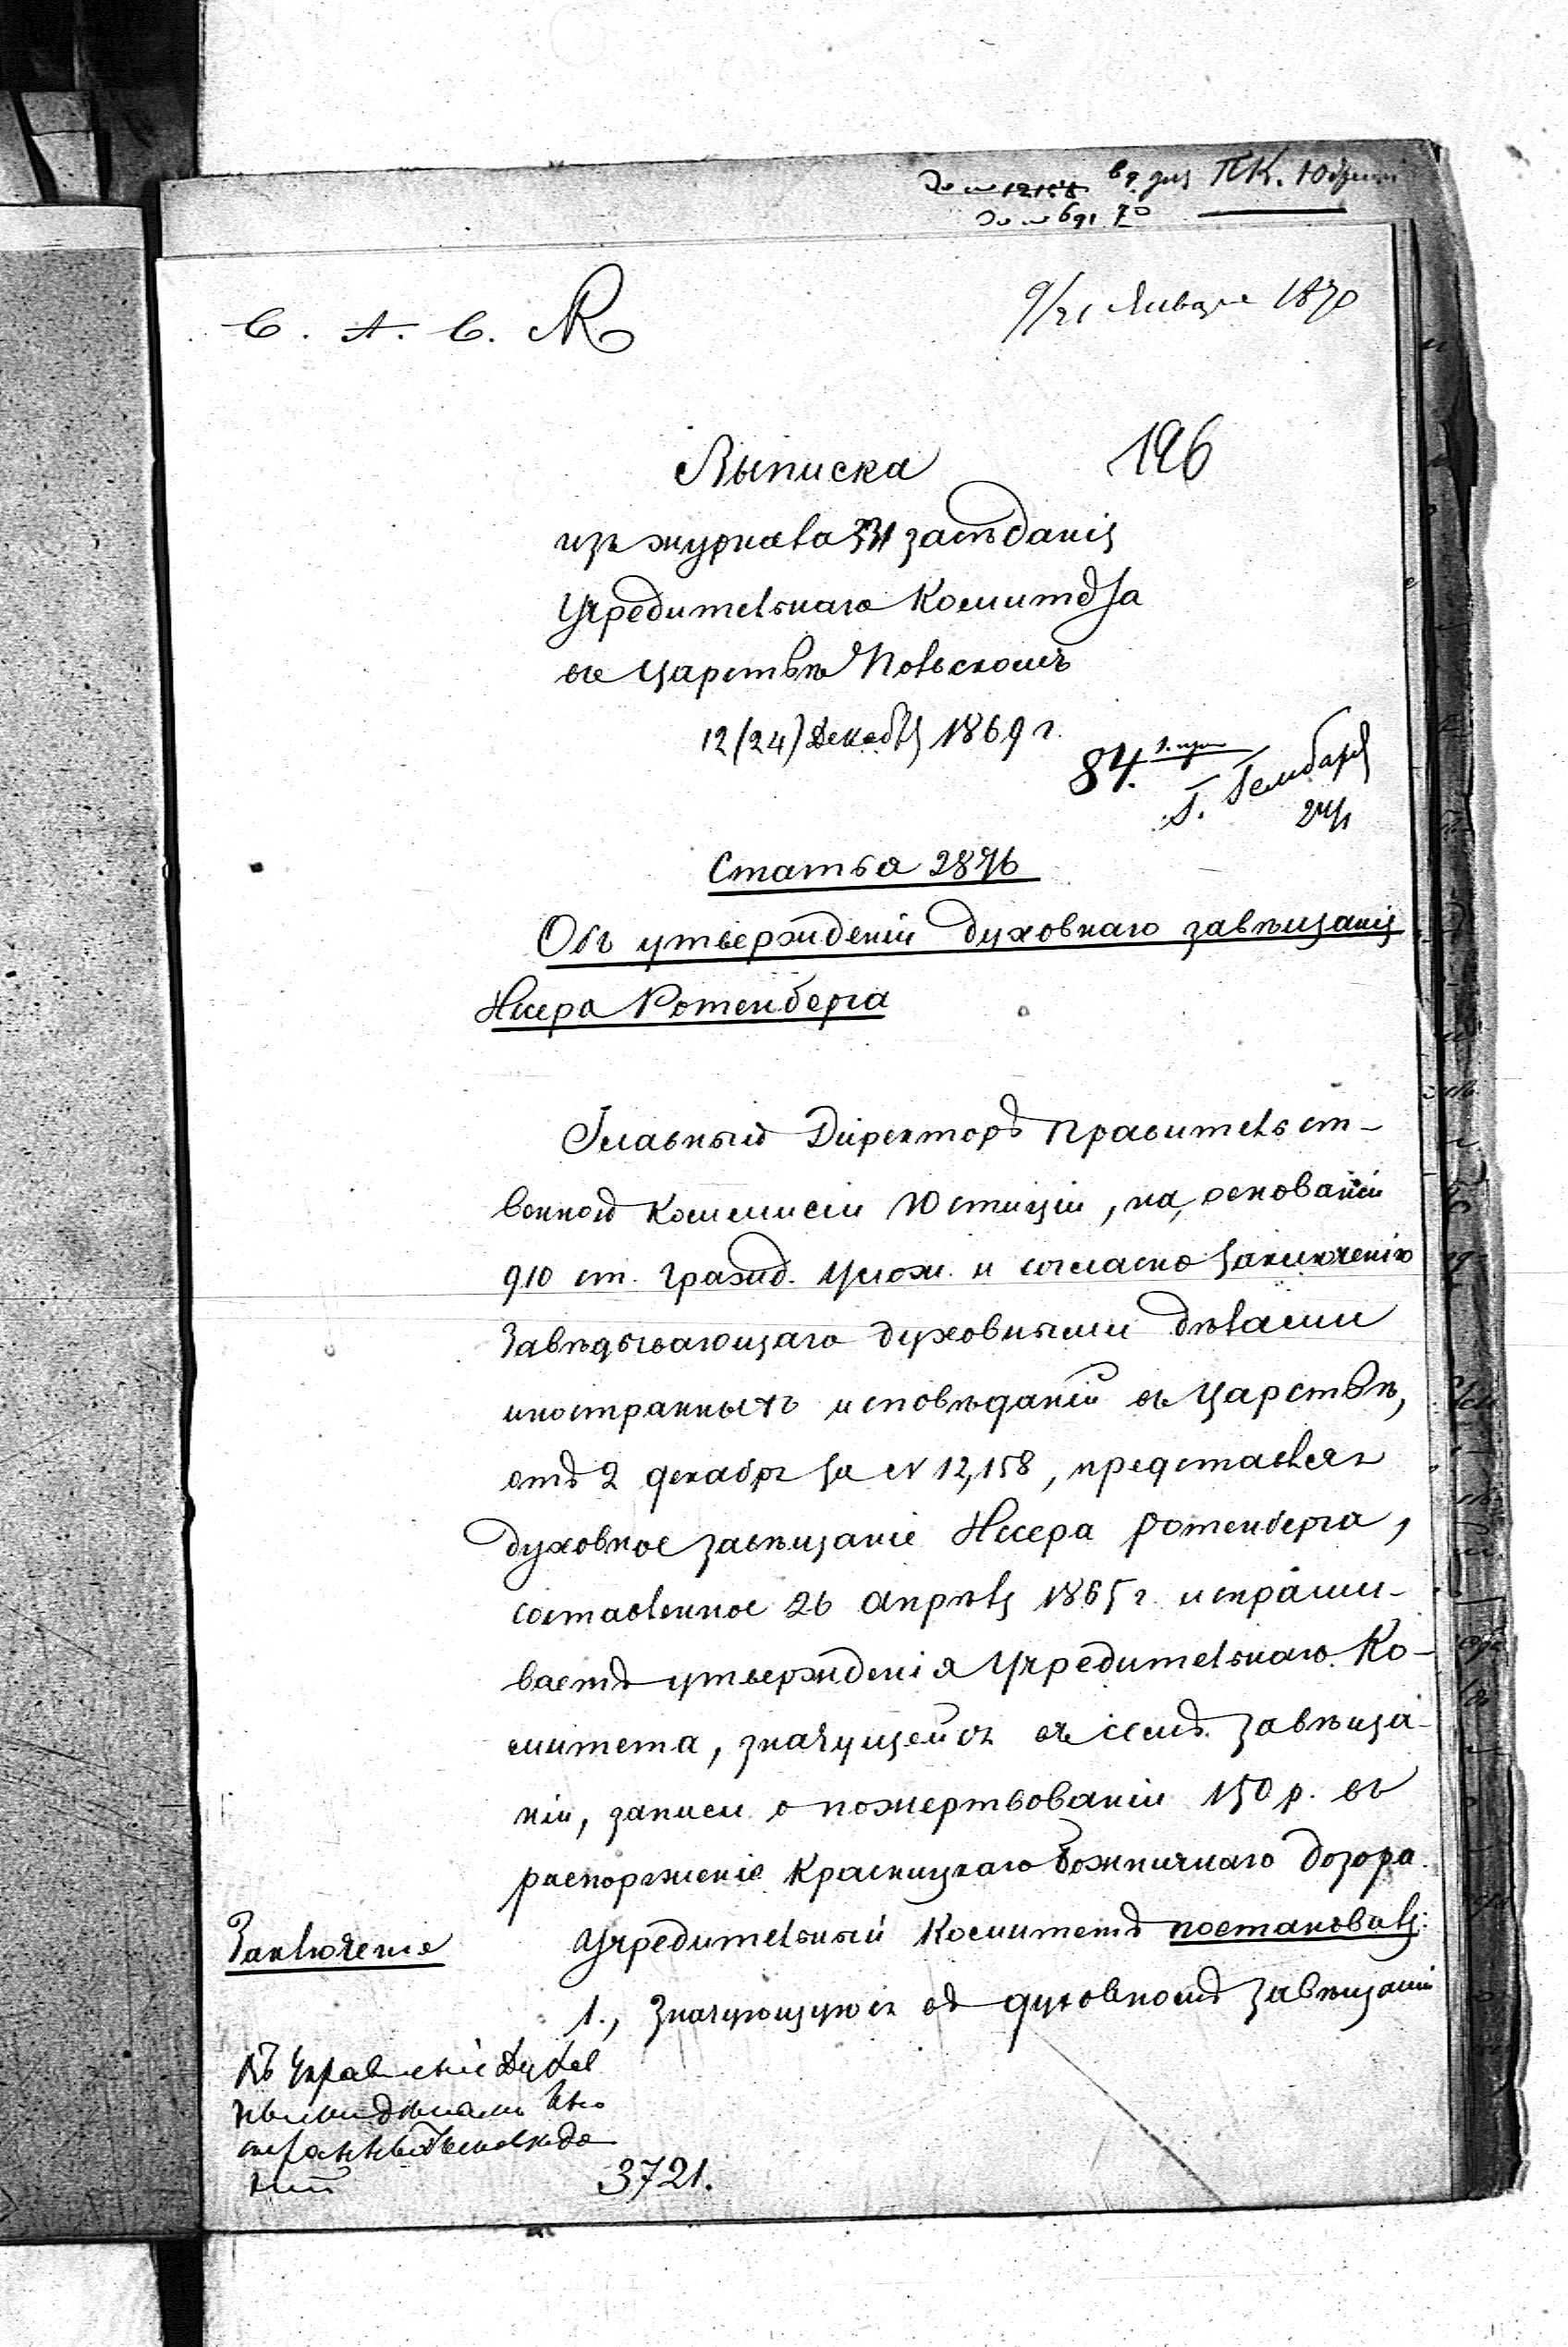 9/21 Января 1870
196
Выписка
изъ журнала засѣданія
Учредительнаго Комитета
въ Царствѣ Польскомъ
12/24) Декабря 1869 г.
84.
Статья 2876
Объ утвержденіи духовнаго завѣщанія
Ротенберга
Главный Директоръ Правительст-
венной Коммисіи Юстиціи, на основаніи
910 ст. Гражд. Улож. и согласно заключенію
Завѣдывающаго духовными дѣлами
иностранныхъ исповѣданій въ Царствѣ,
отъ 2 декабря за N 12,158, представляя
духовное завѣщаніе Ротенберга,
составленное 26 Апрѣля 1865 г. испраши-
ваетъ утвержденія Учредительнаго Ко-
митета, значущейся въ семъ завѣща-
ніи, записи о пожертвованіи 150 р. въ
распоряженіе Красницкаго Божничнаго дозора.
Заключеніе
Учредительный Комитетъ постановилъ:
1., Значующуюся въ духовномъ завѣщаніи
Въ Управленіе Духов
ными дѣлами Ино
странныхъ исповѣда
ній
3721.